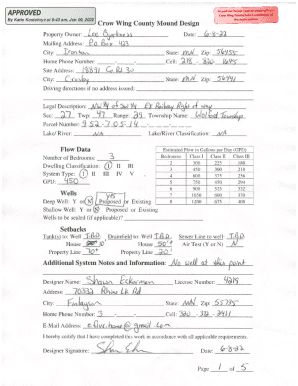 APPROVED
By Katie Koskehya at 8:40 am, Jun 09, 2022
Crow Wing County Mound Design
Property Owner: Lee Date: 6-8-22
Mailing Address: P.O. Box 423
City: State: MN Zip: 56455
Home Phone Number Cell: 218-820-1695
Site Address: 18891 Co Rd 30
City: Crosby State: MN Zip: 56441
Driving directions if no address issued:
Legal Description: NW 1/4 of SW 1/4 Ex Railway Right of way
Sec: 27 Twp: 47 Range: 29 Township Name: Wolford Township
Parcel Number: 952-705-14
Lake/River: NA Lake/River Classification: NA
Flow Data
Number of Bedrooms: 3
Dwelling Classification: I II III
System Type: I II III IV V
GPD: 450
Estimated Flow in Gallons per Day (GPD)
Bedrooms Class I Class II Class III
2 300 225 180
3 450 300 218
4 600 375 256
5 750 450 294
6 900 525 332
7 1050 600 370
8 1200 675 408
Wells
Deep Well Y or N Proposed or Existing
Shallow Well Y or N Proposed or Existing
Wells to be sealed (if applicable)?
Setbacks
Tank(s) to: Well T.B.D. Drainfield to: Well T.B.D. Sewer Line to well T.B.D.
House 10' House 50' Air Test (Y or N) N
Property Line 70' Property Line 20'
Additional System Notes and Information: No well at this point
Designer Name: Shawn Eckerman License Number: 4219
Address: 70332 Rhine Lk Rd
City: Finlayson State: MN Zip: 55735
Home Phone Number: Cell: 320-372-2411
E-Mail Address: e.five.home@gmail.com
I hereby certify that I have completed this work in accordance with all applicable requirements.
Designer Signature: Date: 6-8-22
Page 1 of 5